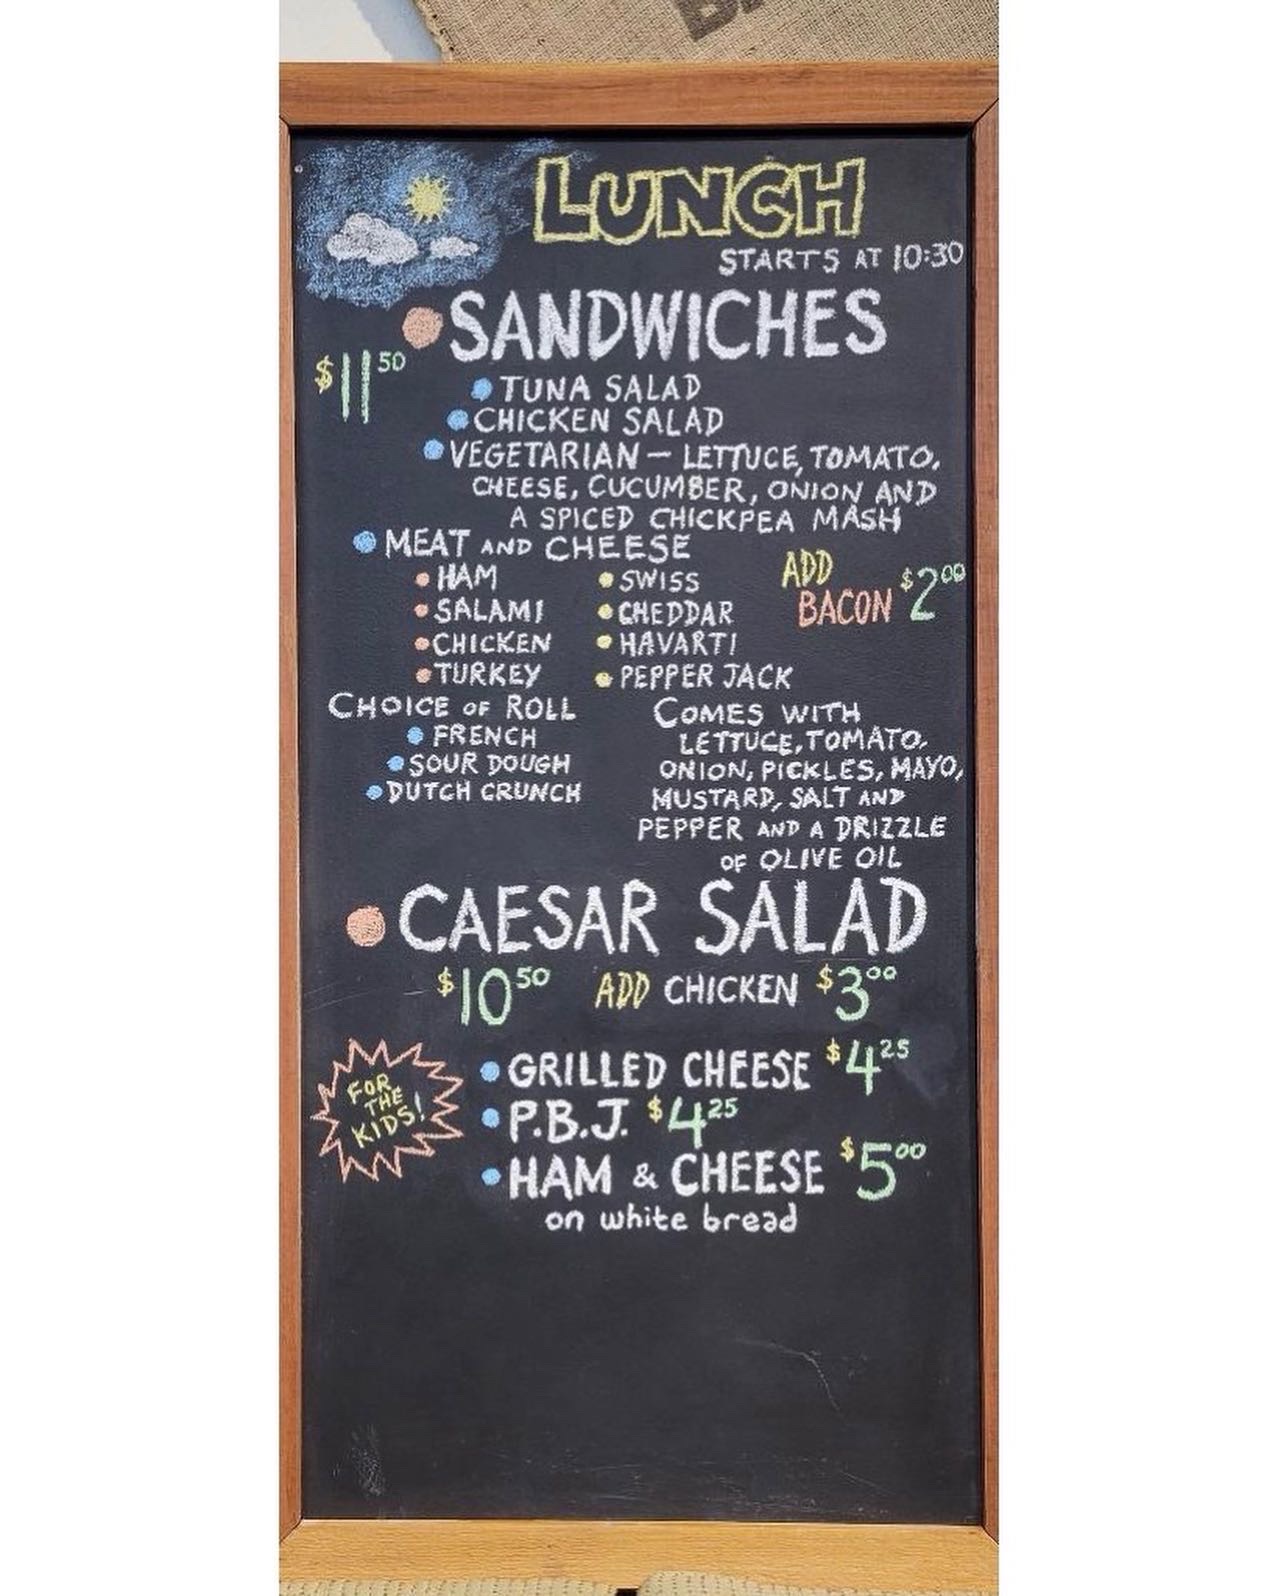 LUNCH
STARTS AT 10:30
SANDWICHES
$11 50
TUNA SALAD
CHICKEN SALAD
VEGETARIAN — LETTUCE, TOMATO,
CHEESE, CUCUMBER, ONION AND
A SPICED CHICKPEA MASH
MEAT AND CHEESE
HAM
SALAMI
CHICKEN
TURKEY
SWISS
CHEDDAR
HAVARTI
PEPPER JACK
ADD
BACON $2 00
CHOICE OF ROLL
FRENCH
SOUR DOUGH
DUTCH CRUNCH
COMES WITH
LETTUCE, TOMATO,
ONION, PICKLES, MAYO,
MUSTARD, SALT AND
PEPPER AND A DRIZZLE
OF OLIVE OIL
CAESAR SALAD
$10 50 ADD CHICKEN $3 00
FOR
THE
KIDS!
GRILLED CHEESE $4 25
P.B.J. $4 25
HAM & CHEESE $5 00
on white bread